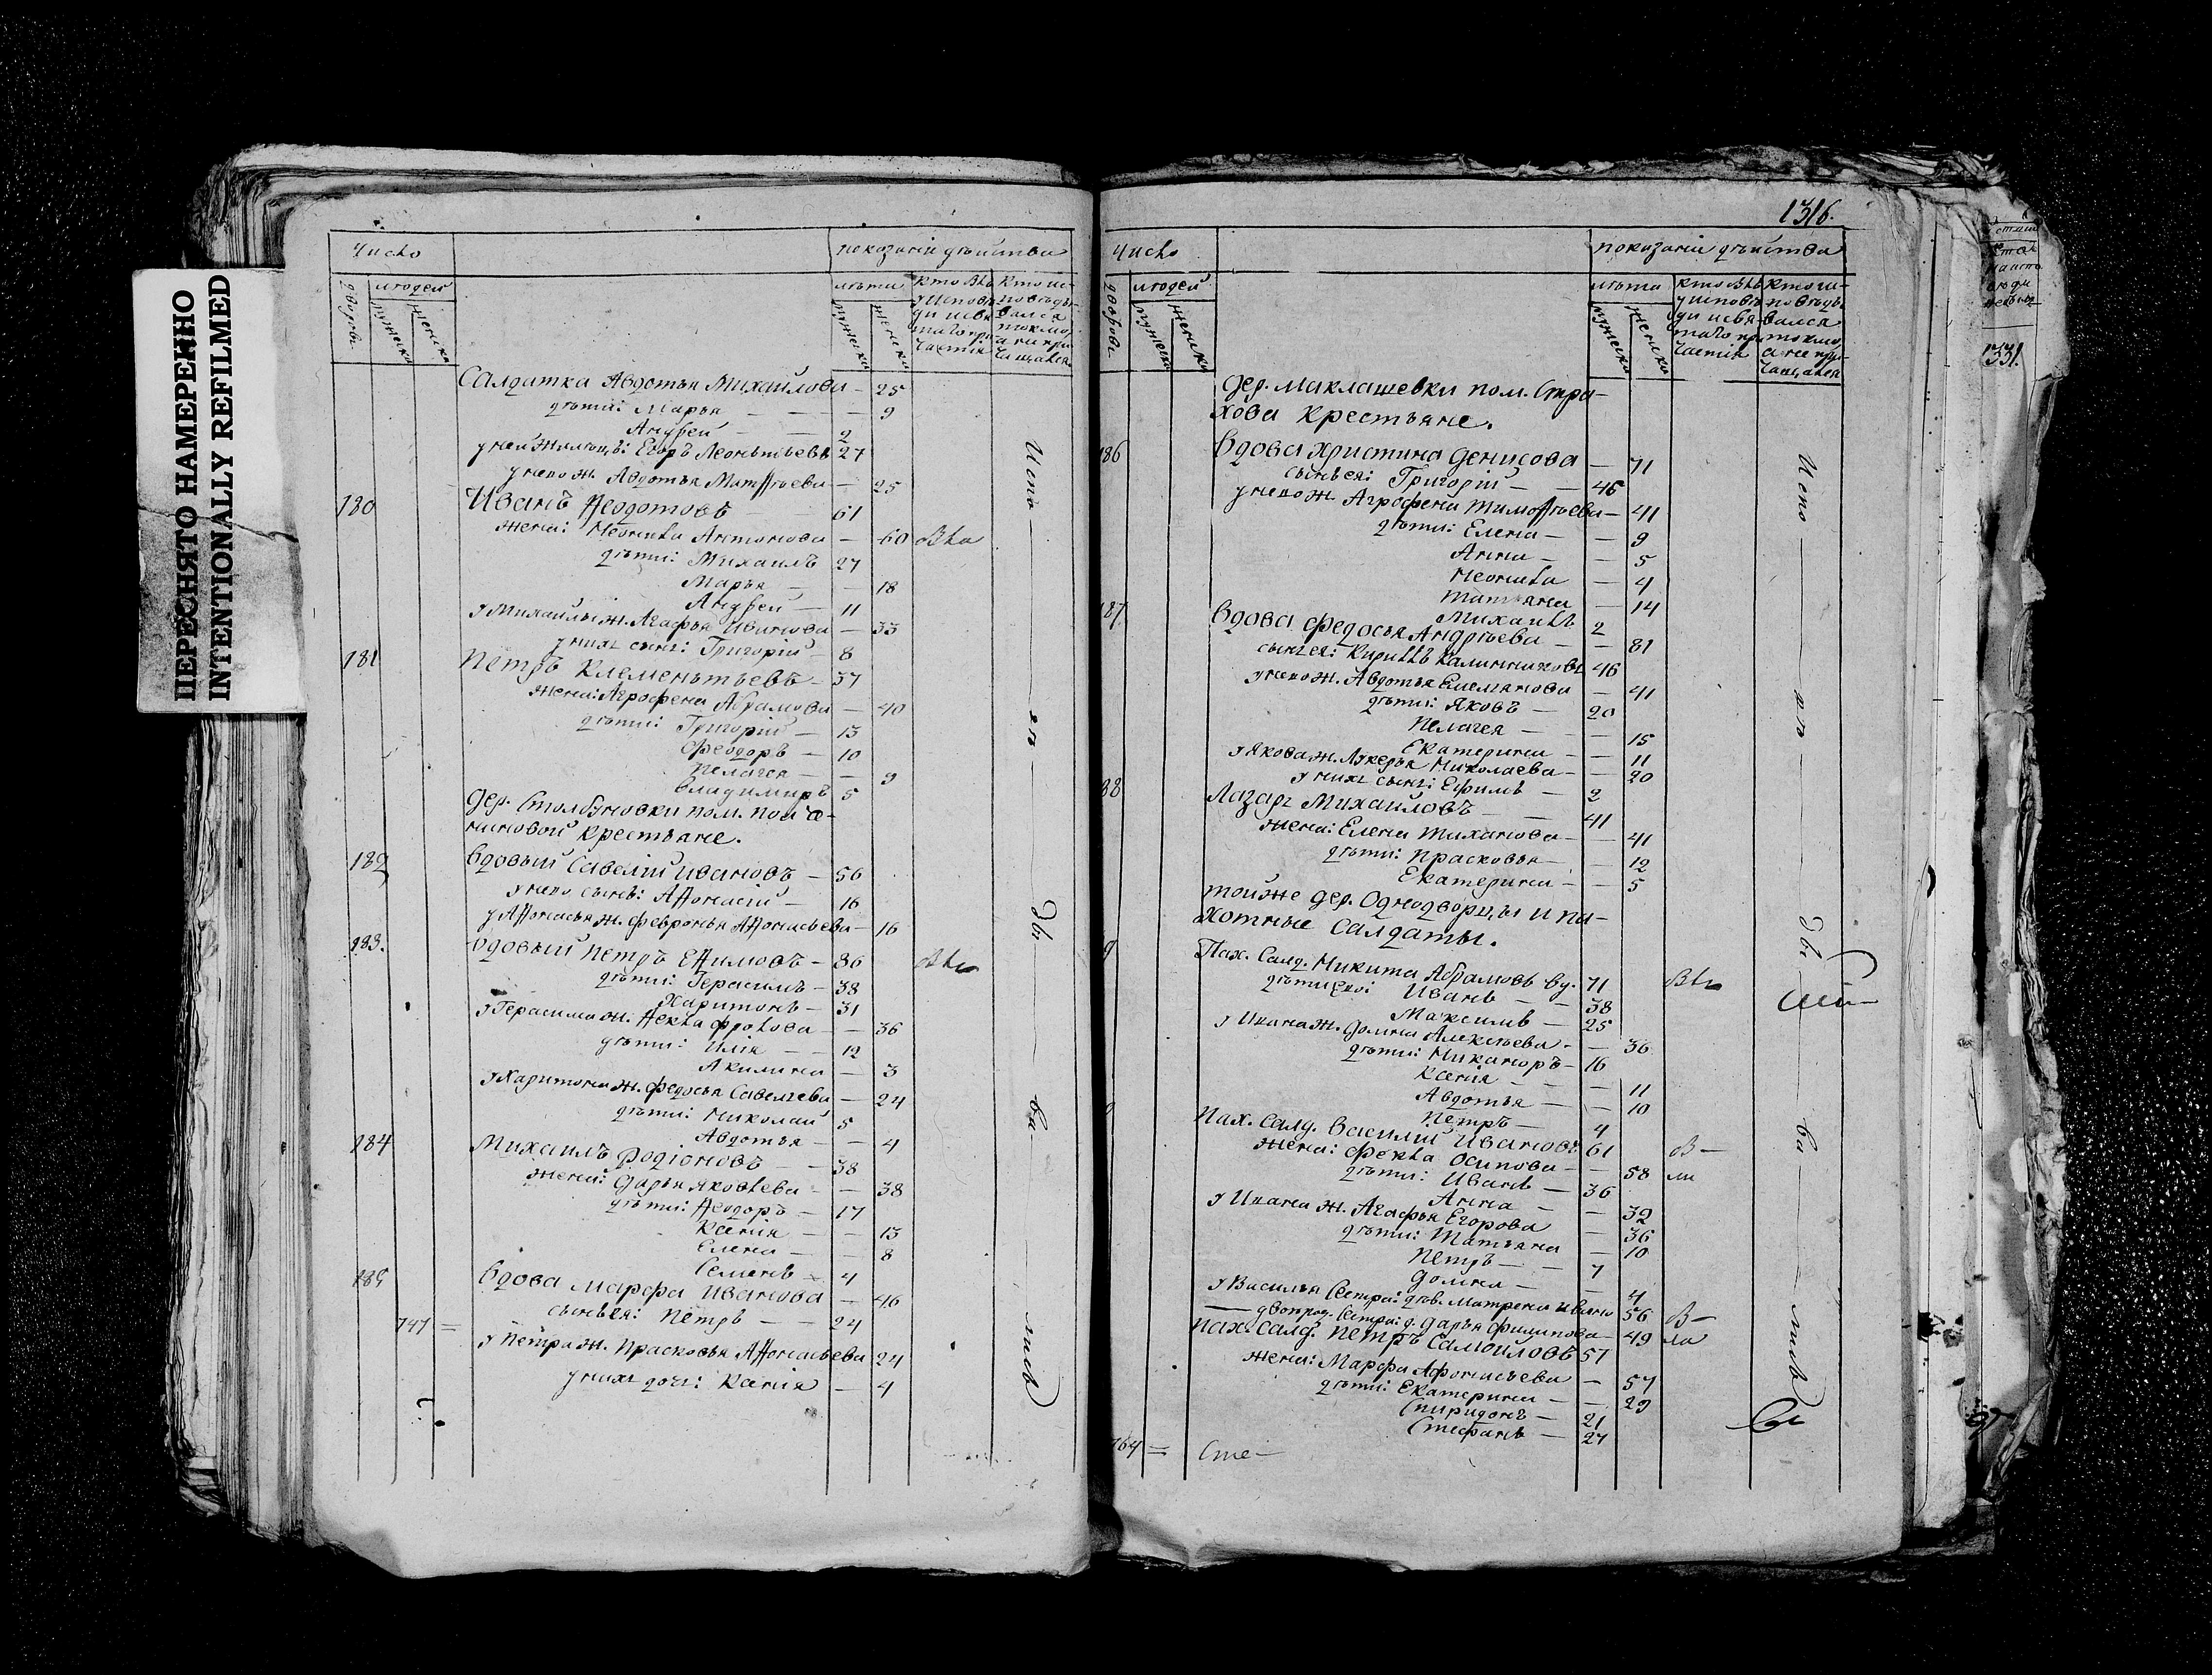 ПЕРЕСНЯТО НАМЕРЕННО
INTENTIONALLY REFILMED
Число
показаніи дѣйства
людей
лѣта
дворовъ
мужеска
женска
мужеска
женска
Салдатка Авдотья Михайлова — 25
дѣти: Марья — 9
Андрей — 2
у ней жилецъ: Егоръ Леонтьевъ 27
у него ж. Авдотья Матѳѣева — 25
180 Иванъ Ѳедотовъ — 61
жена: Неонила Антонова — 60
дѣти: Михаилъ 27
Марья — 18
Андрей — 11
у Михайлы ж. Агафья Иванова — 33
у нихъ сынъ: Григорій — 8
181 Петръ Клементьевъ — 37
жена: Агрофена Абрамова — 40
дѣти: Григорій — 13
Феодоръ — 10
Пелагея — 9
Владимиръ 5
дер. Столбуновки пом.
крестьяне.
182 вдовый Савелій Ивановъ — 56
у него сынъ: Аѳонасій — 16
у Аѳонасья ж. Февронья Аѳонасьева — 16
183. вдовый Петръ Еѳимовъ — 86
дѣти: Герасимъ — 38
Харитонъ — 31
у Герасима ж. Ѳекла Фролова — 36
дѣти: Илія — 12
Акилина — 3
у Харитона ж. Федосья Савельева — 24
дѣти: Николай 5
Авдотья — 4
184 Михаилъ Родіоновъ — 38
жена: Дарья Яковлева — 38
дѣти: Ѳеодоръ — 17
Ксенія — 13
Елена — 8
Семенъ — 4
185 вдова Марфа Иванова — 46
сынъ ея: Петръ — 24
747 =
у Петра ж. Прасковья Аѳонасьева 24
у нихъ дочь: Ксенія — 4
Испо — вѣ — ли — съ
1316.
Число
показаніи дѣйства
людей
лѣта
дворовъ
мужеска
женска
мужеска
женска
дер. Маклашевки пом. Стра-
хова крестьяне.
186 вдова Христина Денисова — 71
сынъ ея: Григорій — 46
у него ж. Агрофена Тимоѳѣева — 41
дѣти: Елена — 9
Анна — 5
Неонила — 4
Татьяна — 14
Михаилъ 2
187 вдова Федосья Андрѣева — 81
сынъ ея: Кирилъ Калинниковъ 46
у него ж. Авдотья Емельянова — 41
дѣти: Яковъ — 20
Пелагея — 15
Екатерина — 11
у Якова ж. Лукерья Николаева — 20
у нихъ сынъ: Ефимъ — 2
88 Лазарь Михайловъ — 41
жена: Елена Тиханова — 41
дѣти: Прасковья — 12
Екатерина — 5
той же дер. Однодворцы и па-
хотные салдаты.
Пах. Салд. Никита Абрамовъ вд. 71
дѣти ево: Иванъ — 38
Максимъ — 25
у Ивана ж. Домна Алексѣева — 36
дѣти: Никаноръ — 16
Ксенія — 11
Авдотья — 10
Петръ — 4
Пах. Салд. Василій Ивановъ 61
жена: Фекла Осипова — 58
дѣти: Иванъ — 36
Анна — 32
у Ивана ж. Агафья Егорова — 36
дѣти: Татьяна — 10
Петръ — 7
Домна — 4
у Василья сестра: дѣв. Матрена Ивано 56
двоюрод. сестра: д. Дарья Филипова — 49
Пах. Салд. Петръ Самойловъ 57
жена: Марфа Афонасьева — 57
дѣти: Екатерина — 29
Спиридонъ — 21
Стефанъ — 27
764 = Сте—
331.